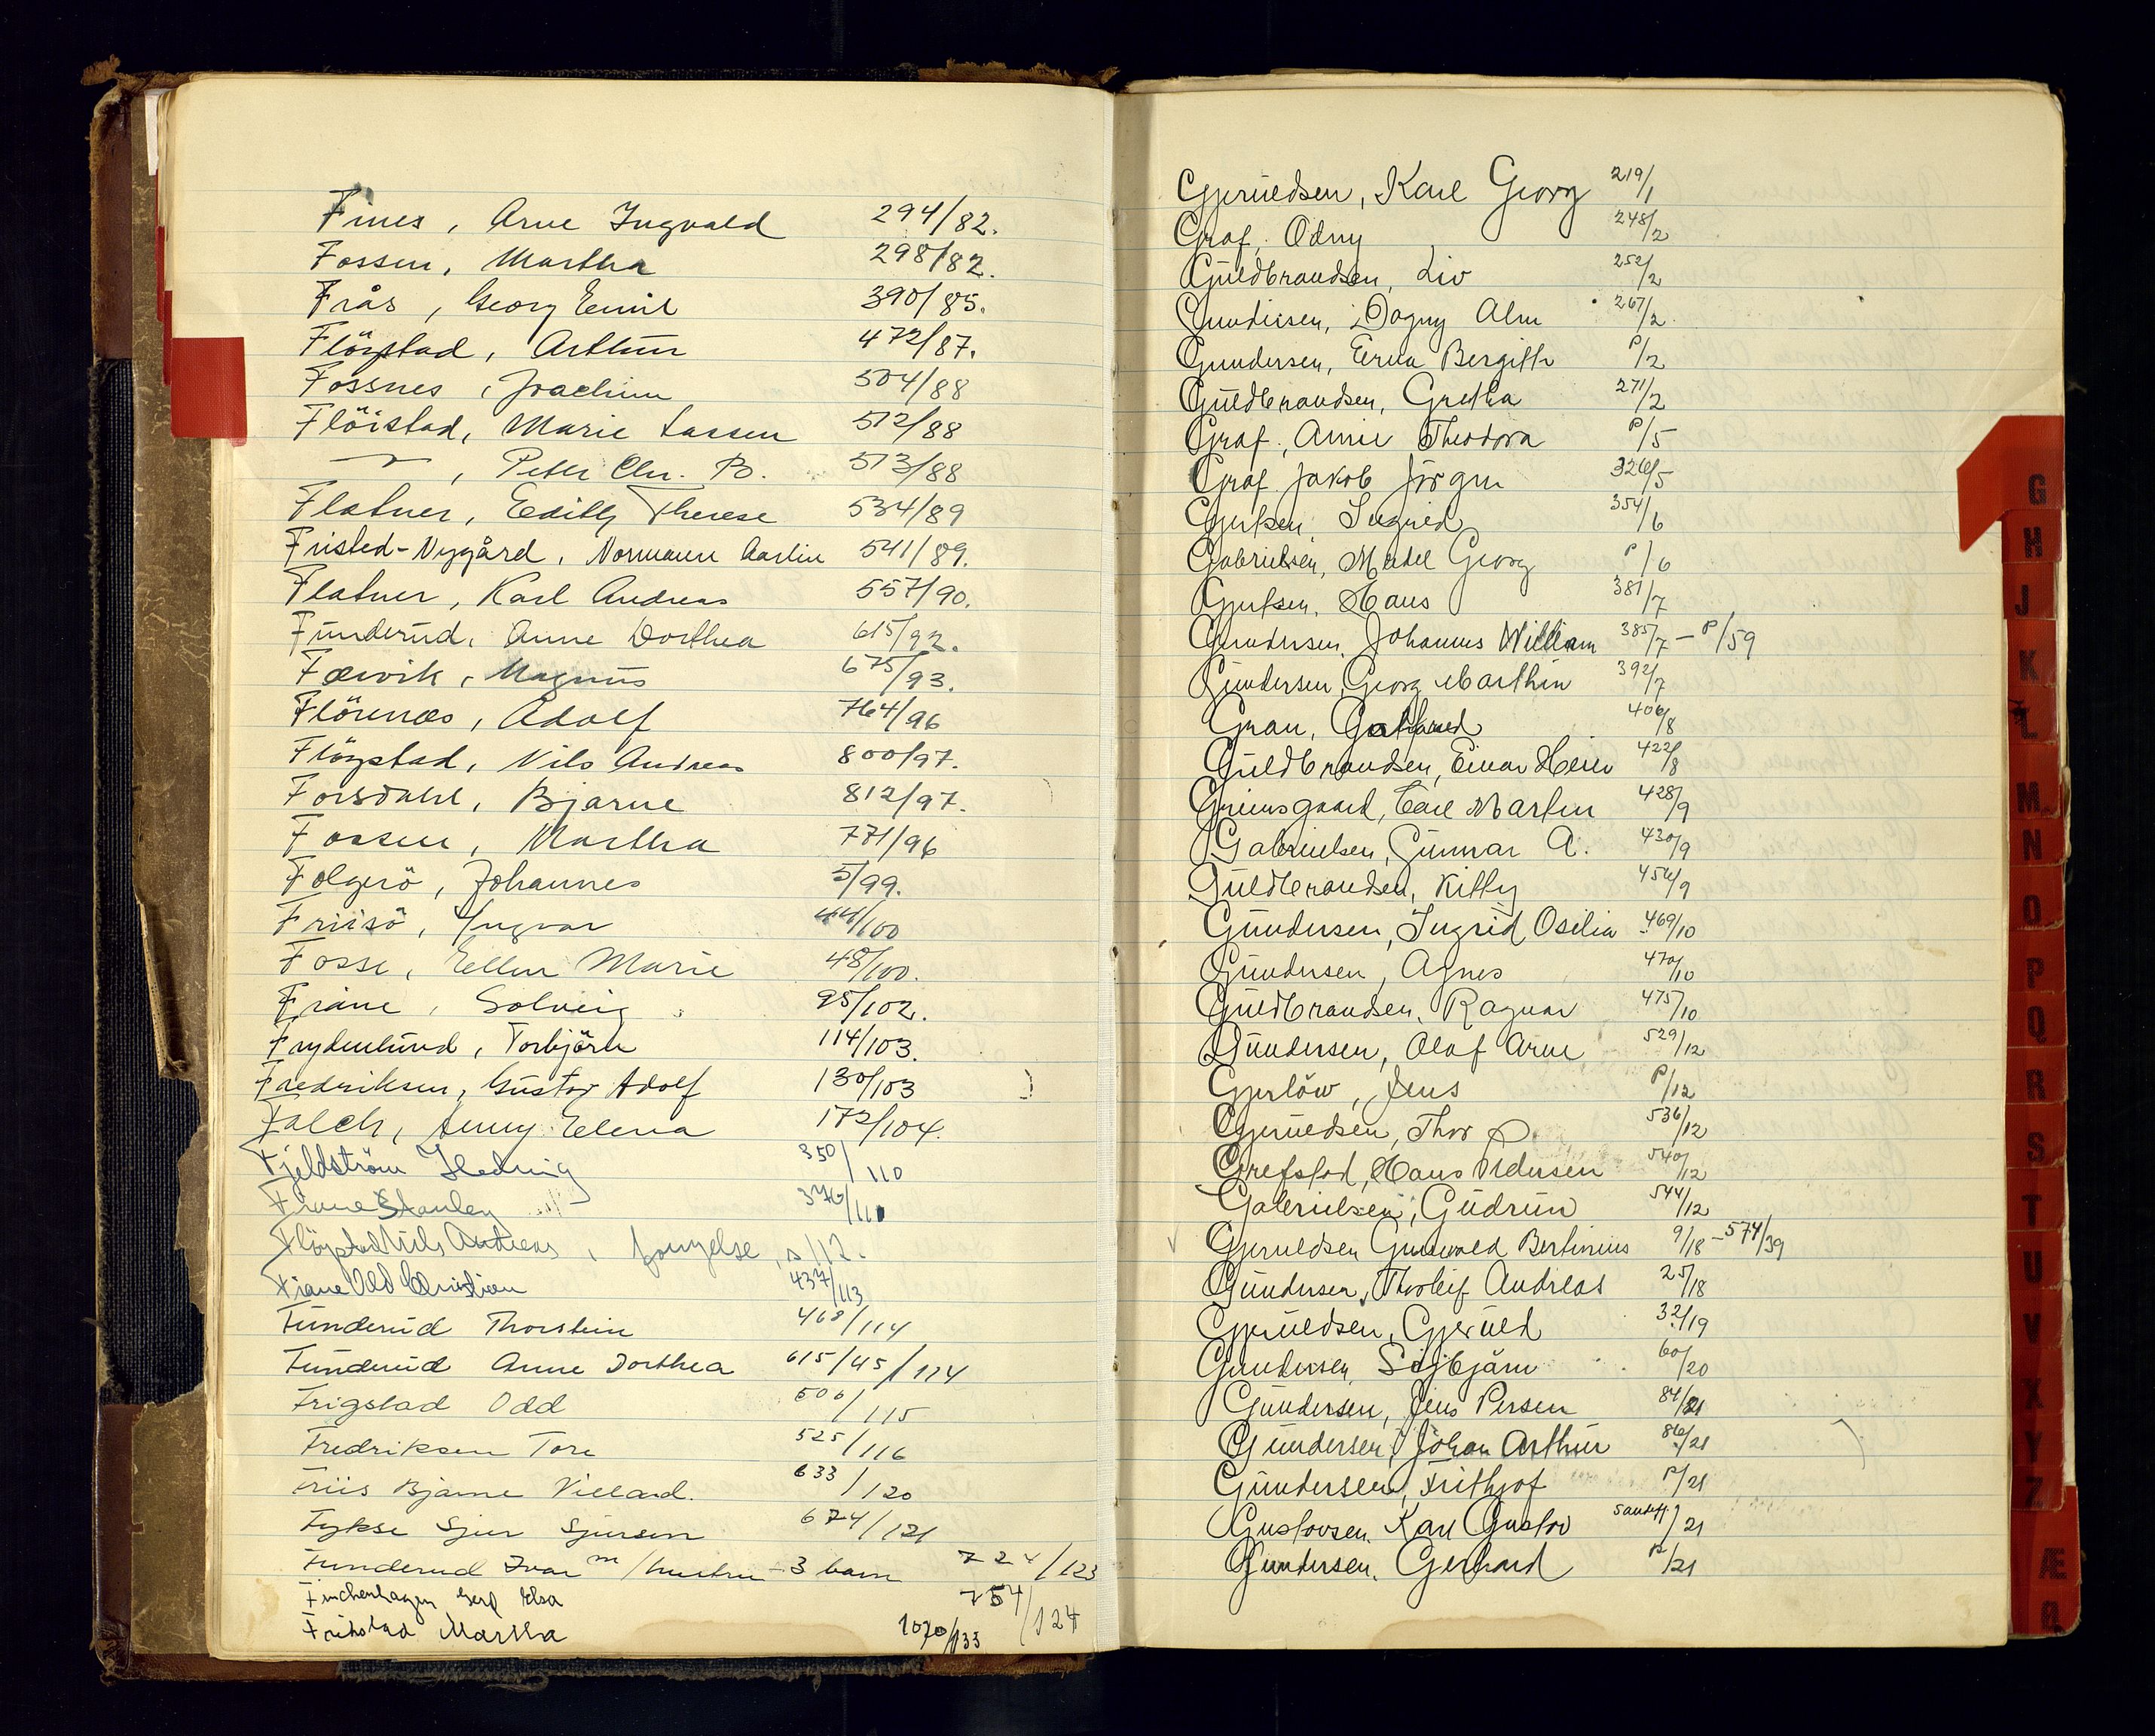 Fines, Arne Ingvald 294/82.
Fossen, Martha 298/82.
Frås, Georg Emil 390/85.
Flögstad, Arthur 472/87.
Fossnes, Joachim 504/88
Flöistad, Marie Lassen 512/88
— " —, Peter Chr. B. 513/88
Flatner, Edith Therese 534/89
Fristed-Nygård, Normann Martin 541/89.
Flatner, Karl Andreas 557/90.
Funderud, Anne Dorthea 615/92.
Færvik, Magnus 675/93.
Flörenæs, Adolf 764/96
Flögstad, Nils Andreas 800/97.
Forsdahl, Bjarne 812/97.
Fossen, Martha 771/96
Folgerö, Johannes 5/99.
Friisö, Yngvar 44/100
Fosse, Ellen Marie 48/100.
Friane, Solveig 95/102.
Frydenlund, Torbjörn 114/103.
Fredriksen, Gustav Adolf 130/103
Falch, Anny Elena 172/104.
Fjeldström Hedvig 350/110
Fiane Stanley 376/111
Flögstad Nils Andreas, fornyelse, s/12.
Fiane Odd Christian 437/113
Funderud Thorstein 468/114
Funderud Anne Dorthea 615/45/114
Frigstad Odd 506/115
Fredriksen Tore 525/116
Friis Bjarne Villard. 633/120
Fykse Sjur Sjursen 674/121
Funderud Ivar m/hustru - 3 barn 724/123
Finckenhagen Gerd Elsa 754/124
Frikstad Martha 1070/133
Gjeruldsen, Karl Georg 219/1
Graf, Odny 248/2
Guldbrandsen, Liv 252/2
Gundersen, Dagny Alm 267/2
Gundersen, Erna Bergith P/2
Guldbrandsen, Gretha 271/2
Graf, Annie Theodora P/5
Graf Jakob Jörgen 326/5
Gjertsen, Ingrid 354/6
Gabrielsen, Mikal Georg P/6
Gjertsen, Hans 381/7
Gundersen, Johannes William 385/7 – P/59
Gundersen, Georg Marthin 392/7
Gran, Gotfred 406/8
Guldbrandsen, Einar Heier 422/8
Grimsgaard, Carl Martin 428/9
Gabrielsen, Gunnar A. 430/9
Guldbrandsen, Kitty 456/9
Gundersen, Ingrid Osilia 469/10
Gundersen, Agnes 470/10
Guldbrandsen, Ragnar 475/10
Gundersen, Olaf Arne 529/12
Gjerlöw, Jens P/12
Gjeruldsen, Thor P. 536/12
Grefstad, Hans Pedersen 540/12
Gabrielsen, Gudrun 544/12
Gjeruldsen Gunvald Bertinius 9/18 – 574/39
Gundersen, Thorleif Andreas 25/18
Gjeruldsen, Gjeruld 32/19
Gundersen, Sigbjörn 60/20
Gundersen, Jens Persen 84/21
Gundersen, Johan Arthur 86/21
Gundersen, Frithjof P/21
Gustavsen, Karl Gustav Sandeff/21
Gundersen, Gerhard P/21
G
H
J
K
L
M
N
O
P
Q
R
S
T
U
V
X
Y
Z
Æ
Ø